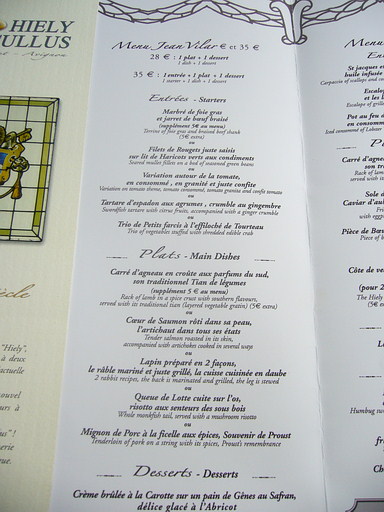 HIELY
ULLUS
Avignon
ècle
"Hiely",
à deux
actuelle
ouvel
eurs à
us" !
serie
que.
Menu Jean Vilar € et 35 €
28 € : 1 plat + 1 dessert
1 dish + 1 dessert
35 € : 1 entrée + 1 plat + 1 dessert
1 starter + 1 dish + 1 dessert
Entrées - Starters
Marbré de foie gras
et jarret de bœuf braisé
(supplément 5€ au menu)
Terrine of foie gras and braised beef shank
(5€ extra)
ou
Filets de Rougets juste saisis
sur lit de Haricots verts aux condiments
Seared mullet fillets on a bed of seasoned green beans
ou
Variation autour de la tomate,
en consommé, en granité et juste confite
Variation on tomato theme, tomato consommé, tomato granita and confit tomato
ou
Tartare d'espadon aux agrumes, crumble au gingembre
Swordfish tartare with citrus fruits, accompanied with a ginger crumble
ou
Trio de Petits farcis à l'effiloché de Tourteau
Trio of vegetables stuffed with shredded edible crab
Plats - Main Dishes
Carré d'agneau en croûte aux parfums du sud,
son traditionnel Tian de légumes
(supplément 5 € au menu)
Rack of lamb in a spice crust with southern flavours,
served with its traditional tian (layered vegetable gratin) (5€ extra)
ou
Cœur de Saumon rôti dans sa peau,
l'artichaut dans tous ses états
Tender salmon roasted in its skin,
accompanied with artichokes cooked in several ways
ou
Lapin préparé en 2 façons,
le râble mariné et juste grillé, la cuisse cuisinée en daube
2 rabbit recipes, the back is marinated and grilled, the leg is stewed
ou
Queue de Lotte cuite sur l'os,
risotto aux senteurs des sous bois
Whole monkfish tail, served with a mushroom risotto
ou
Mignon de Porc à la ficelle aux épices, Souvenir de Proust
Tenderloin of pork on a string with its spices, Proust's remembrance
Desserts - Desserts
Crème brûlée à la Carotte sur un pain de Gênes au Safran,
délice glacé à l'Abricot
Menu
E
St jacques
huile infusée
Carpaccio of scallops and
Escalop
et les
Escalope of grille
Pot au feu d
en consomm
Iced consommé of Lobster
P
Carré d'agne
son
Rack of lamb
served with it
Sole d
Caviar d'aub
Fri
with egg
Pièce de Bœ
Côte de ve
(pour 2
The Rib
(5€
serv
Humbug tw
fr
Ch